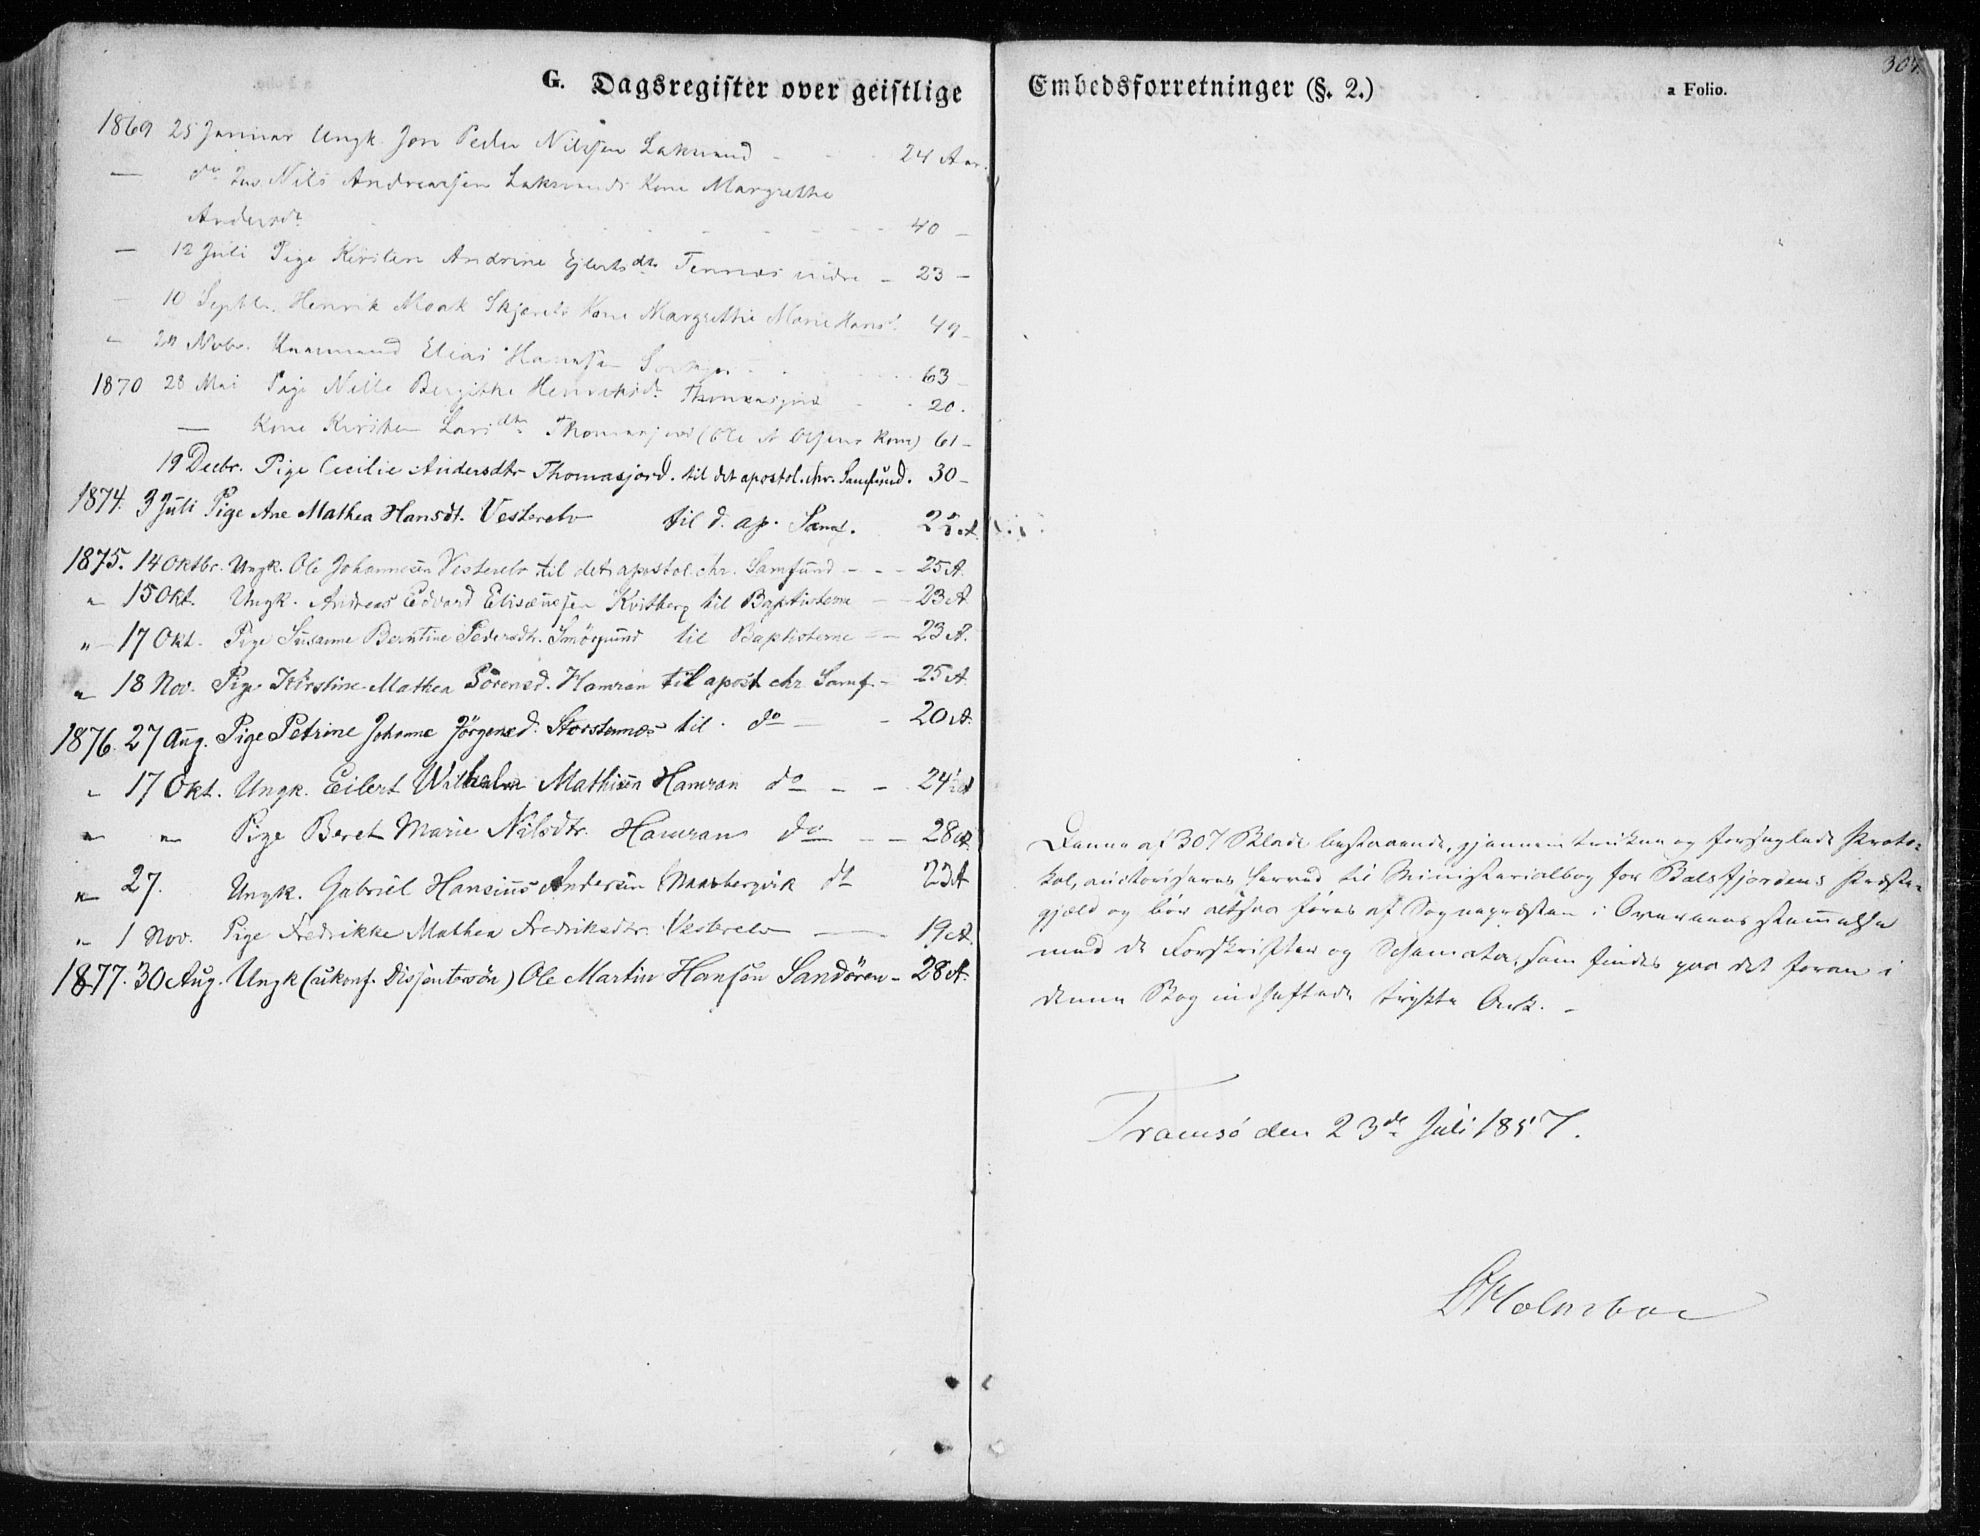 G. Dagsregister over geistlige Embedsforretninger (§. 2.)
a Folio.
307.
1869 25 Januar Ungk. Jon Peder Nilssen Laksvand - - - 24 Aar.
— do Nils Andreassen Laksvands Kone Margrethe
Andersdr - - - 40 —
— 12 Juli Pige Kirsten Andrine Ejlertsdtr Tennæs indre - 23 —
— 10 Septbr. Henrik Moak Kone Margrethe Marie Hansd. 49 —
" 20 Novbr. Elias Hansen - - - 63 —
1870 28 Mai Pige Nille Bergithe Henriksdr. - - 20.
— Kone Kirsten Larsdtr Thomasjord (Ole A Olsens Kone) 61 —
19 Decbr. Pige Cecilie Andersdtr Thomasjord. til det apostol. chr. Samfund. 30 —
1874. 3 Juli Pige Ane Mathea Hansdt. Vesterelv til d. ap. Samf. A.
1875. 14 Oktbr. Ungk. Ole Johannesen Vesterelv til det apostol. chr. Samfund - - - 25 A.
" 15 Okt. Ungk. Andreas Edvard Elisæussen Kvitberg til Baptisterne - - 23 A.
" 17 Okt. Pige Susanne Berntine Pedersdtr. til Baptisterne - - 23 A.
" 18 Nov. Pige Kirstine Mathea Sörensd. Hamran til apost chr Samf. - 25 A.
1876. 27 Aug. Pige Petrine Johanne Jörgensd. Storstennæs til do — - 20 A.
" 17 Okt. Ungk. Eilert Wilhelm Mathisen Hamran do - - 24½ A
" " Pige Beret Marie Nilsdtr. Hamran do - - 28 A.
" 27. Ungk. Gabriel Hansinus Andersen do 23 A
" 1 Nov. Pige Fredrikke Mathea Fredriksdtr. Vesterelv — 19 A.
1877. 30 Aug. Ungk (ukonf. Dissentersön) Ole Martin Hansen Sandören - 28 A.
Denne af 307 Blade bestaaende, gjennemtrukne og forseglede Proto-
kol, auctoriseres herved til Ministerialbog for Balsfjordens Præste-
gjæld og bör altsaa föres af Sognepræsten i Overeensstemmelse
med de Forskrifter og Schemata, som findes paa det foran i
denne Bog indheftede trykte Ark. -
Tromsö den 23de Juli 1857.
Holmboe